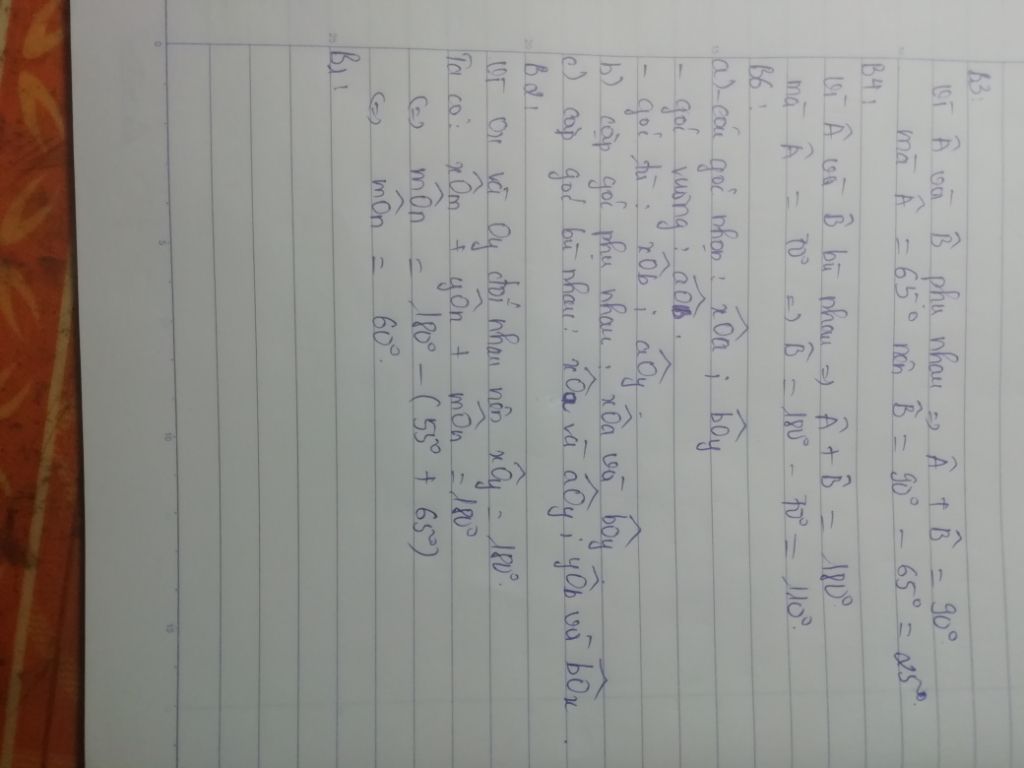 B3:
Vì Â và B̂ phụ nhau => Â + B̂ = 90°
mà Â = 65° nên B̂ = 90° - 65° = 25°
B4:
Vì Â và B̂ bù nhau => Â + B̂ = 180°
mà Â = 70° => B̂ = 180° - 70° = 110°
B6:
a) - các góc nhọn: xÔa ; bÔy
- góc vuông: aÔb.
- góc tù: xÔb ; aÔy
b) cặp góc phụ nhau: xÔa và bÔy
c) cặp góc bù nhau: xÔa và aÔy ; yÔb và bÔx.
B8:
Vì Ox và Oy đối nhau nên xÔy = 180°.
Ta có: xÔm + yÔn + mÔn = 180°
<=> mÔn = 180° - (55° + 65°)
<=> mÔn = 60°.